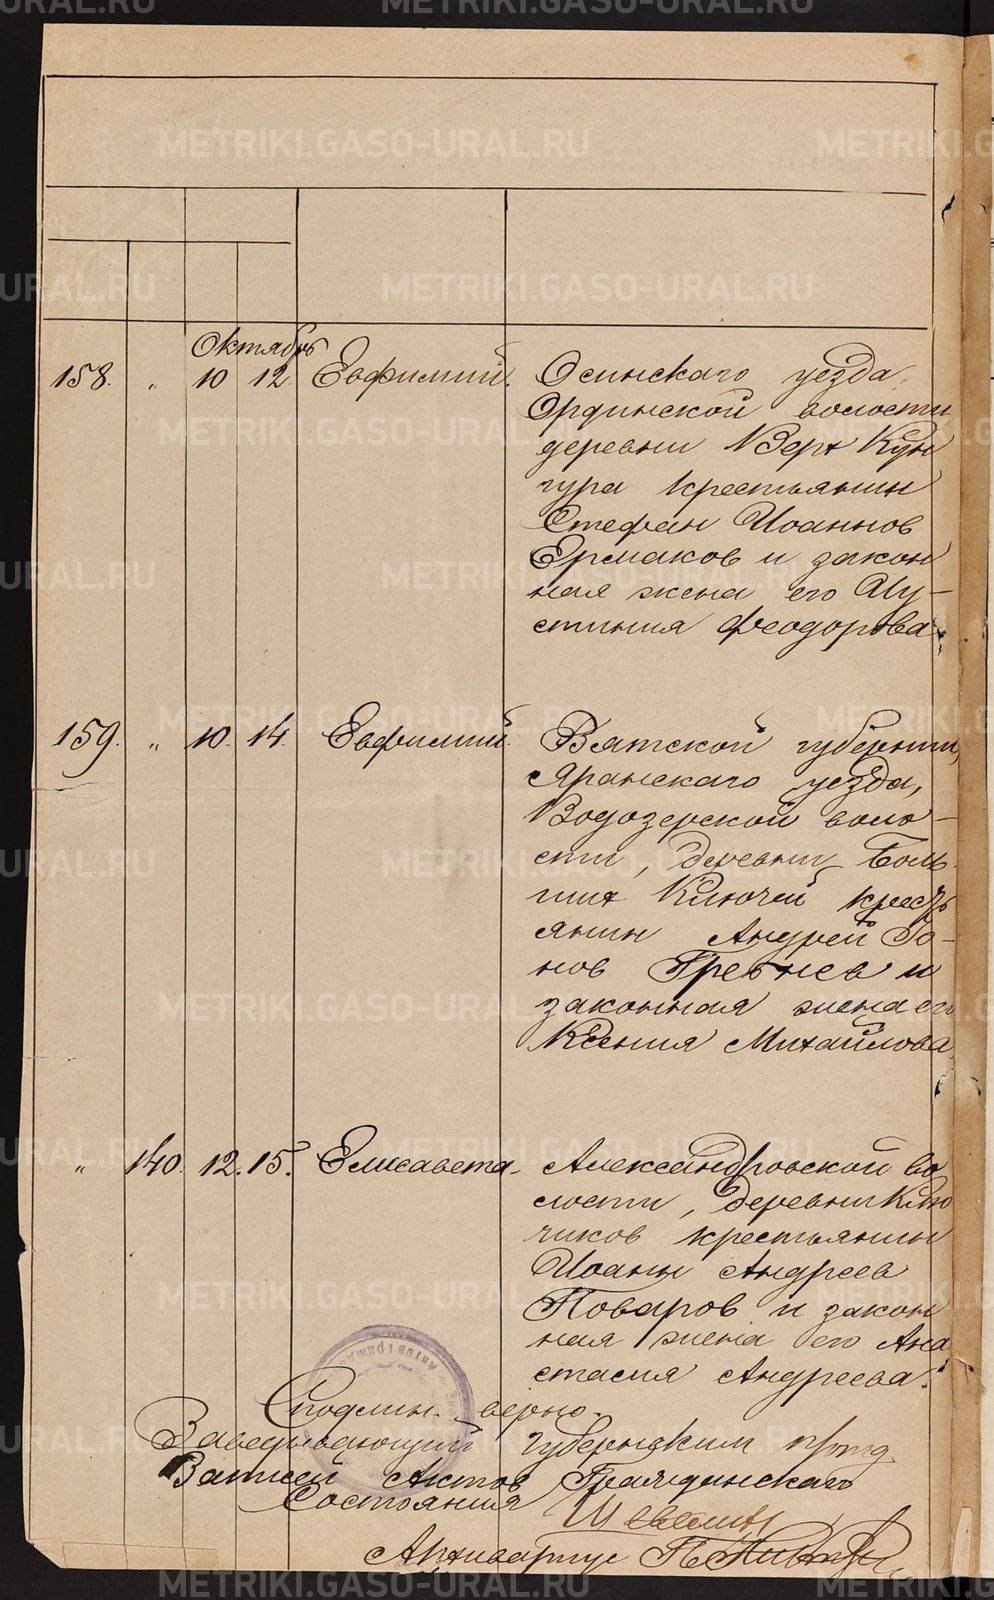 METRIKI.GASO-URAL.RU
Октябрь
158. „ 10 12. Евфимий. Осинскаго уезда,
Ординской волости
деревни Верх Кун
гура крестьянин
Стефан Иоаннов
Ермаков и закон
ная жена его Иу-
стиния Феодорова.
159. „ 10. 14. Евфимий. Вятской губернии,
Яранскаго уезда,
Водозерской воло-
сти, деревни Боль-
ших Ключей кресть
янин Андрей Ио-
нов Гребнев и
законная жена его
Ксения Михайлова.
„ 140. 12. 15. Елисавета. Александровской во
лости, деревни Клю
чиков крестьянин
Иоанн Андреев
Поваров и закон
ная жена его Ана
стасия Андреева.
С подлин. верно.
Заведывающий губернским подъотд.
Записей Актов Гражданскаго
Состояния
Архивариус